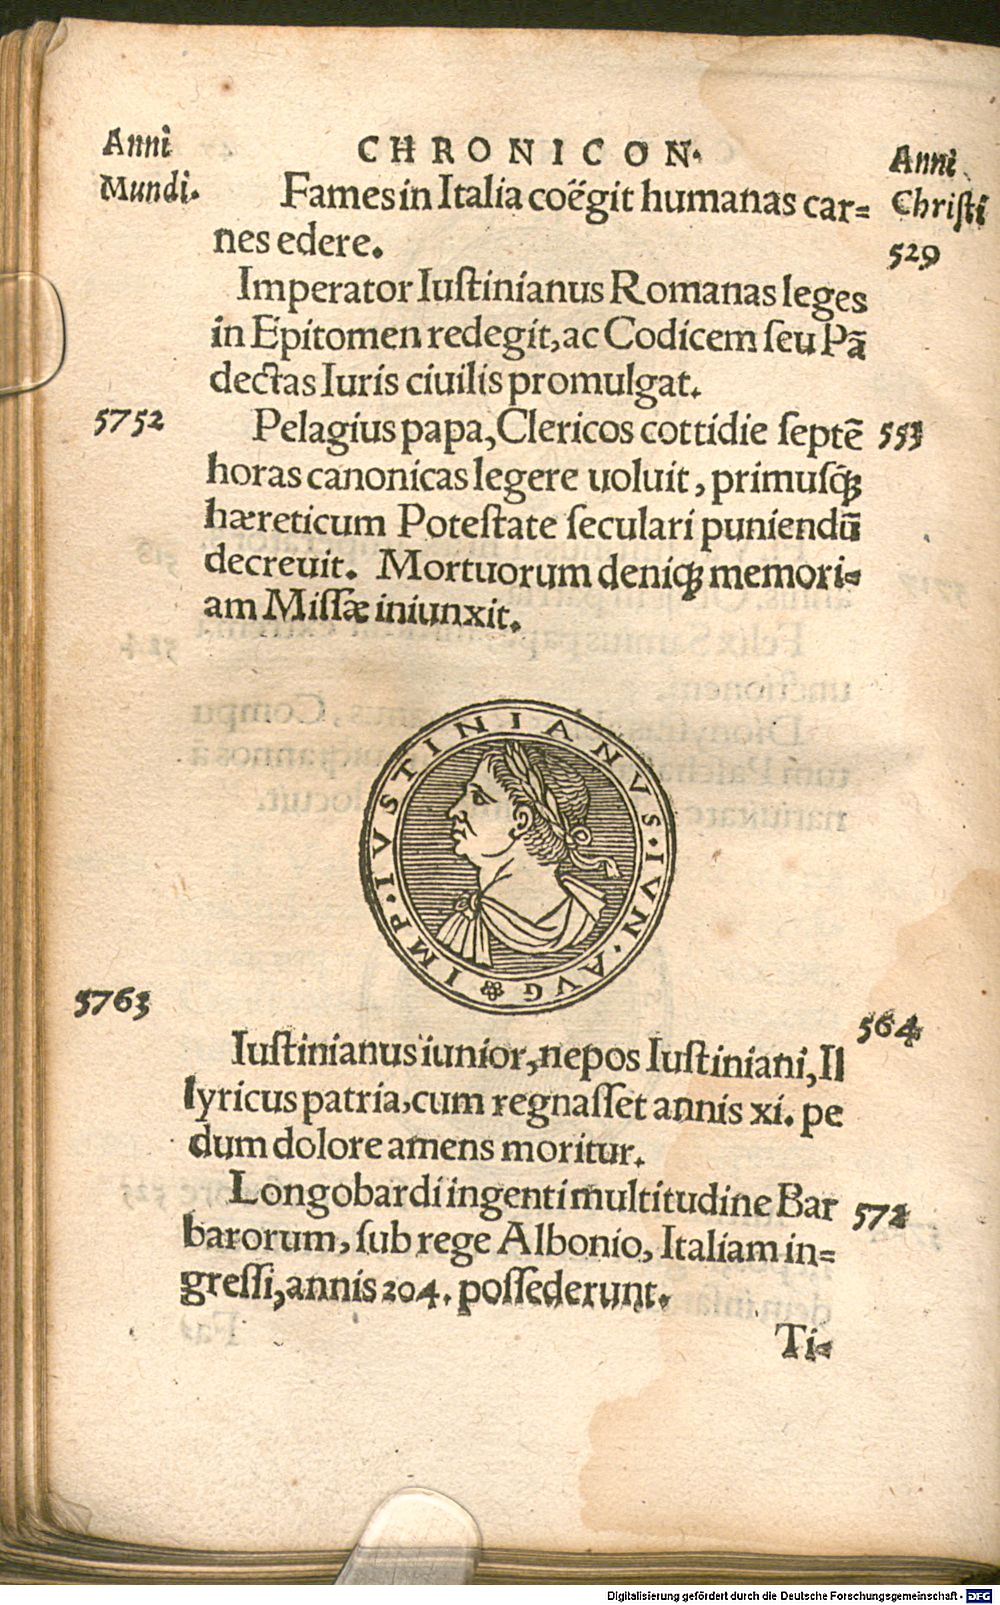 Anni
Mundi.
CHRONICON.
Anni
Christi
529
Fames in Italia coëgit humanas car=
nes edere.
Imperator Iustinianus Romanas leges
in Epitomen redegit, ac Codicem ſeu Pã
dectas Iuris ciuilis promulgat.
5752
Pelagius papa, Clericos cottidie ſeptẽ
553
horas canonicas legere uoluit, primuſq́ꝫ
hæreticum Poteſtate ſeculari puniendũ
decreuit. Mortuorum deniqꝫ memori=
am Miſſæ iniunxit.
IMP · IVSTINIANVS · IVN · AVG
5763
564
Iuſtinianus iunior, nepos Iuſtiniani, Il
lyricus patria, cum regnaſſet annis xi. pe
dum dolore amens moritur.
Longobardi ingenti multitudine Bar
572
barorum, ſub rege Albonio, Italiam in=
greſſi, annis 204. poſſederunt.
Ti=
Digitalisierung gefördert durch die Deutsche Forschungsgemeinschaft - DFG